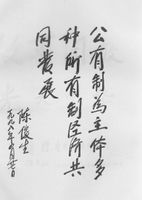 公有制为主体多
种所有制经济共
同发展
陈俊生
一九九八年